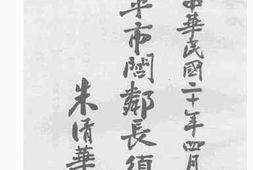 中華民國二十年四月
平市閭鄰長須
朱清華